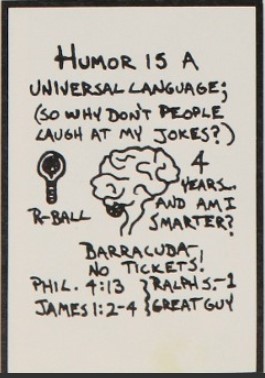 HUMOR IS A
UNIVERSAL LANGUAGE;
(SO WHY DON'T PEOPLE
LAUGH AT MY JOKES?)
4
YEARS..
AND AM I
SMARTER?
R-BALL
BARRACUDA-
NO TICKETS!
PHIL. 4:13 } RALPH S.-1
JAMES 1:2-4 } GREAT GUY